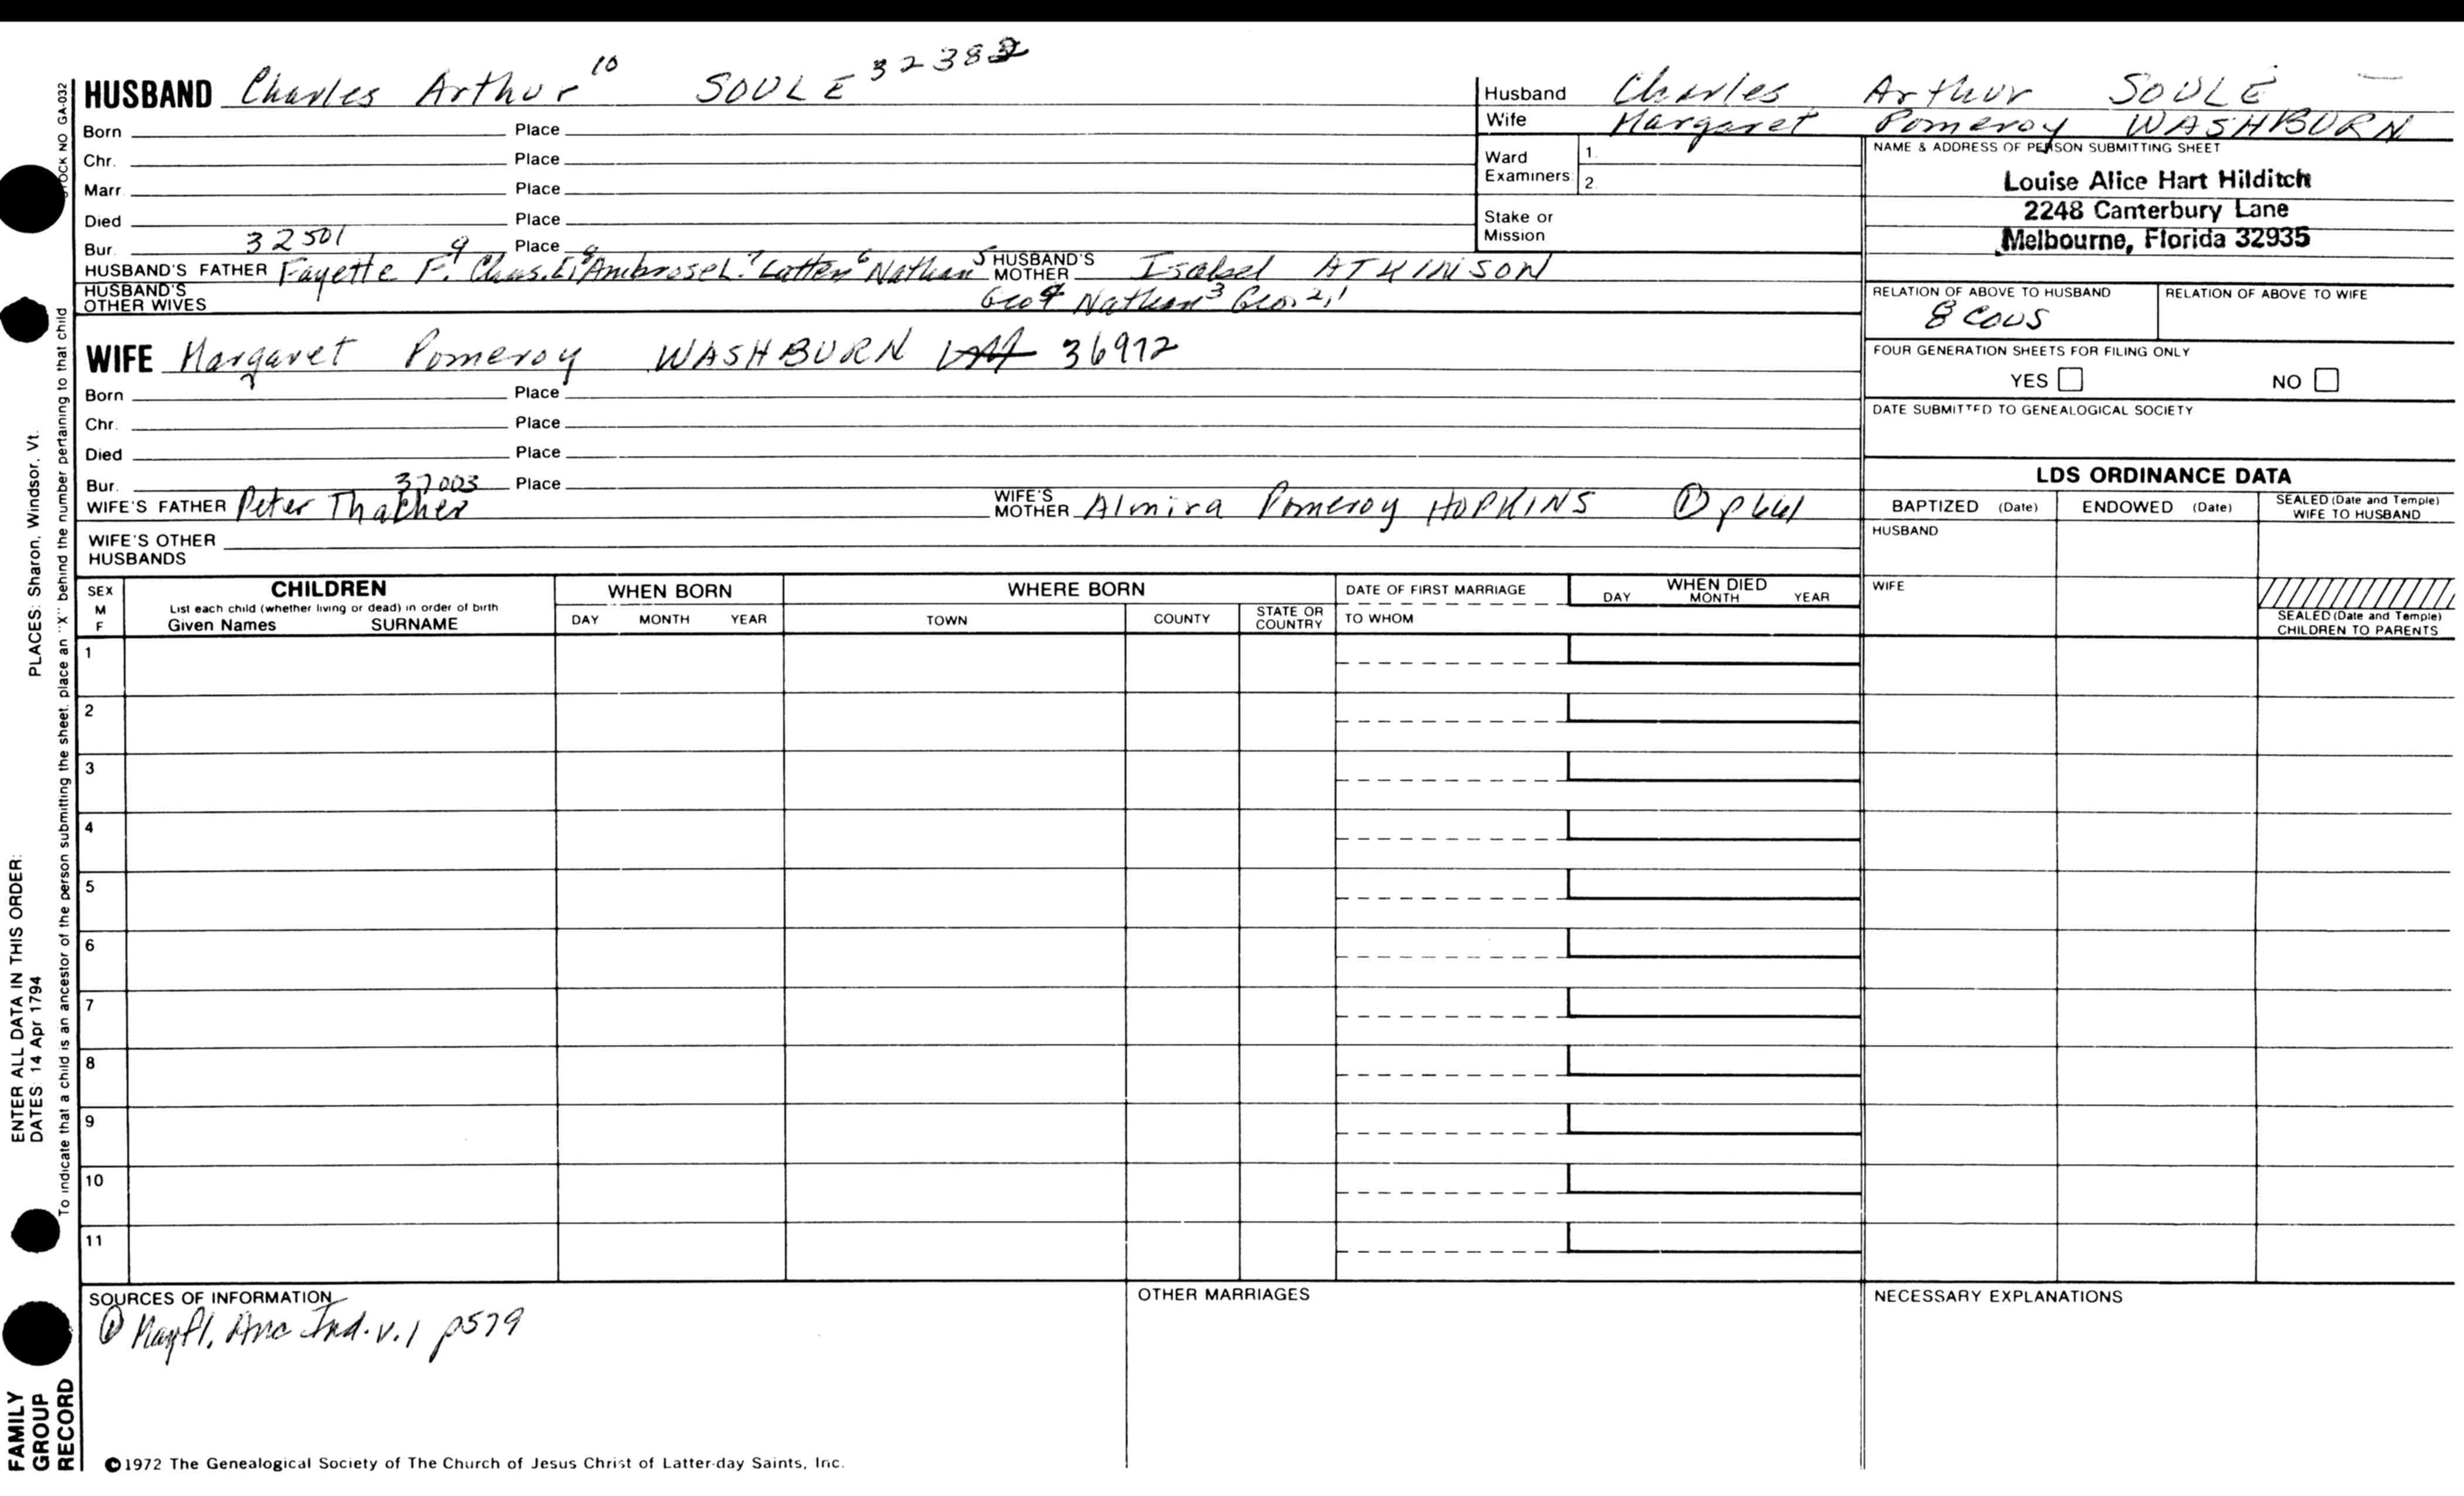 HUSBAND Charles Arthur 10 SOULE 32382
Husband Charles Arthur SOULE
Wife Margaret Pomeroy WASHBURN
Born Place
Chr. Place
Marr. Place
Died Place
Bur. 32501 Place
Ward Examiners 1. 2.
Stake or Mission
NAME & ADDRESS OF PERSON SUBMITTING SHEET
Louise Alice Hart Hilditch
2248 Canterbury Lane
Melbourne, Florida 32935
HUSBAND'S FATHER Fayette F. 9 Chas. E. 8 Ambrose L. 7 Lotten 6 Nathan 5
HUSBAND'S MOTHER Isabel ATKINSON
HUSBAND'S OTHER WIVES Geo 4 Nathan 3 Geo. 2,1
RELATION OF ABOVE TO HUSBAND
8 COUS
RELATION OF ABOVE TO WIFE
WIFE Margaret Pomeroy WASHBURN 36972
FOUR GENERATION SHEETS FOR FILING ONLY
YES NO
Born Place
Chr. Place
Died Place
Bur. 37003 Place
DATE SUBMITTED TO GENEALOGICAL SOCIETY
WIFE'S FATHER Peter Thacher
WIFE'S MOTHER Almira Pomeroy HOPKINS ① p661
WIFE'S OTHER HUSBANDS
LDS ORDINANCE DATA
BAPTIZED (Date) ENDOWED (Date) SEALED (Date and Temple) WIFE TO HUSBAND
HUSBAND
WIFE
SEALED (Date and Temple) CHILDREN TO PARENTS
SEX M F
CHILDREN
List each child (whether living or dead) in order of birth
Given Names SURNAME
WHEN BORN
DAY MONTH YEAR
WHERE BORN
TOWN COUNTY STATE OR COUNTRY
DATE OF FIRST MARRIAGE
TO WHOM
WHEN DIED
DAY MONTH YEAR
1
2
3
4
5
6
7
8
9
10
11
SOURCES OF INFORMATION
① Mayfl. Anc Ind. v. 1 p579
OTHER MARRIAGES
NECESSARY EXPLANATIONS
©1972 The Genealogical Society of The Church of Jesus Christ of Latter-day Saints, Inc.
STOCK NO GA-032
To indicate that a child is an ancestor of the person submitting the sheet, place an "X" behind the number pertaining to that child
PLACES: Sharon, Windsor, Vt.
ENTER ALL DATA IN THIS ORDER:
DATES: 14 Apr 1794
FAMILY
GROUP
RECORD